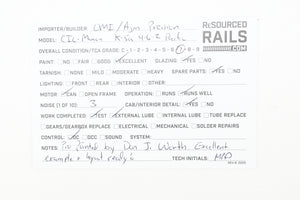 RESOURCED
RAILS
.COM
IMPORTER/BUILDER: LMI/Ajin Precision
MODEL: CIL-Monon K-5a 4-6-2 Pacific
OVERALL CONDITION/TCA GRADE: C-1-2-3-4-5-6-7-8-9
PAINT: NO FAIR GOOD EXCELLENT GLAZING: YES NO
TARNISH: NO MINOR MODERATE HEAVY SPARE PARTS: YES NO
LIGHTING: FRONT REAR INTERIOR OTHER
MOTOR: CAN OPEN FRAME OPERATION: RUNS RUNS WELL
NOISE (1 OF 10): 3 CAB/INTERIOR DETAIL: YES NO
WORK COMPLETED: TEST EXTERNAL LUBE INTERNAL LUBE TUBE REPLACE
GEARS/GEARBOX REPLACE ELECTRICAL MECHANICAL SOLDER REPAIRS
CONTROL: DC DCC SOUND SYSTEM:
NOTES: Pro Painted by Don J. Worth Excellent
example + layout ready
TECH INITIALS: MAD